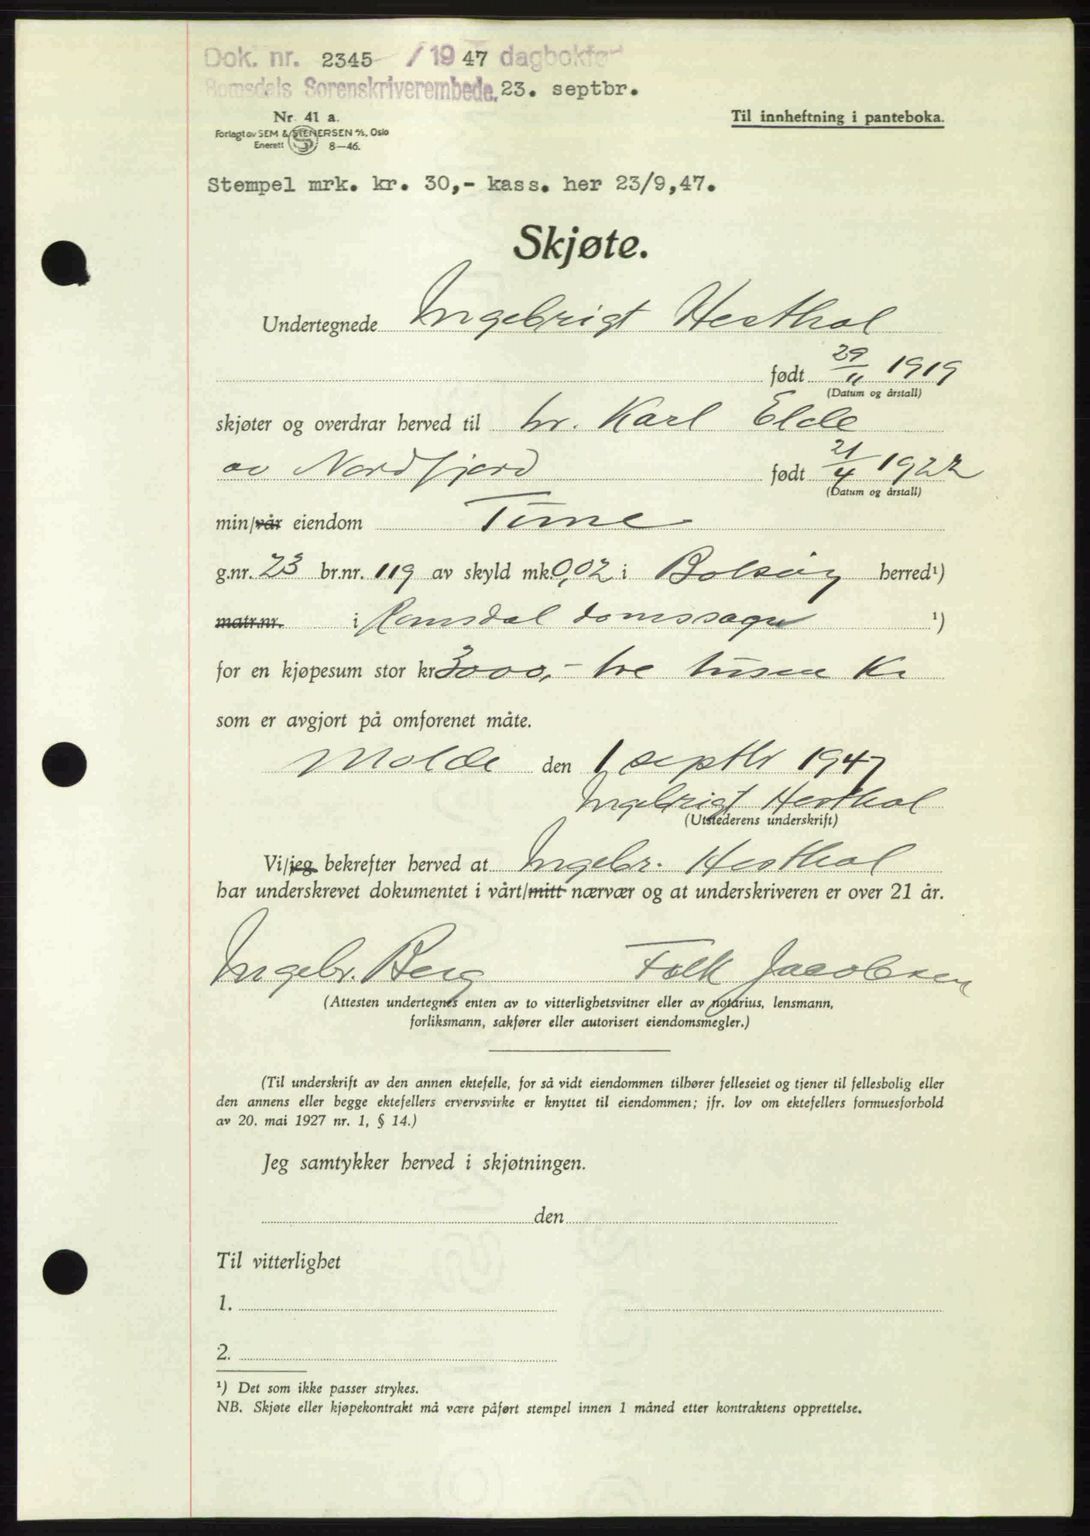 Dok. nr. 2345 / 1947 dagbokført
Romsdals Sorenskriverembede. 23. septbr.
Nr. 41 a.
Til innheftning i panteboka.
Forlagt av SEM & STENERSEN A/S, Oslo
Enerett S 8—46.
Stempel mrk. kr. 30,- kass. her 23/9,47.
Skjøte.
Undertegnede Ingebrigt Hesthol
født 29/11 1919
(Datum og årstall)
skjøter og overdrar herved til hr. Karl Elde
av Nordfjord født 21/4 1922
(Datum og årstall)
min/vår eiendom Time
g.nr. 23 br.nr. 119 av skyld mk. 0,02 i Bolsøy herred¹)
matr.nr. i Romsdal domssogn ¹)
for en kjøpesum stor kr 3000,- tre tusen Kr
som er avgjort på omforenet måte.
Molde den 1 septbr 1947
Ingebrigt Hesthol
(Utstederens underskrift)
Vi/jeg bekrefter herved at Ingebr. Hesthol
har underskrevet dokumentet i vårt/mitt nærvær og at underskriveren er over 21 år.
Ingebr. Berg Falk Jacobsen
(Attesten undertegnes enten av to vitterlighetsvitner eller av notarius, lensmann,
forliksmann, sakfører eller autorisert eiendomsmegler.)
(Til underskrift av den annen ektefelle, for så vidt eiendommen tilhører felleseiet og tjener til fellesbolig eller
den annens eller begge ektefellers ervervsvirke er knyttet til eiendommen; jfr. lov om ektefellers formuesforhold
av 20. mai 1927 nr. 1, § 14.)
Jeg samtykker herved i skjøtningen.
den
Til vitterlighet
1.
2.
¹) Det som ikke passer strykes.
NB. Skjøte eller kjøpekontrakt må være påført stempel innen 1 måned etter kontraktens opprettelse.